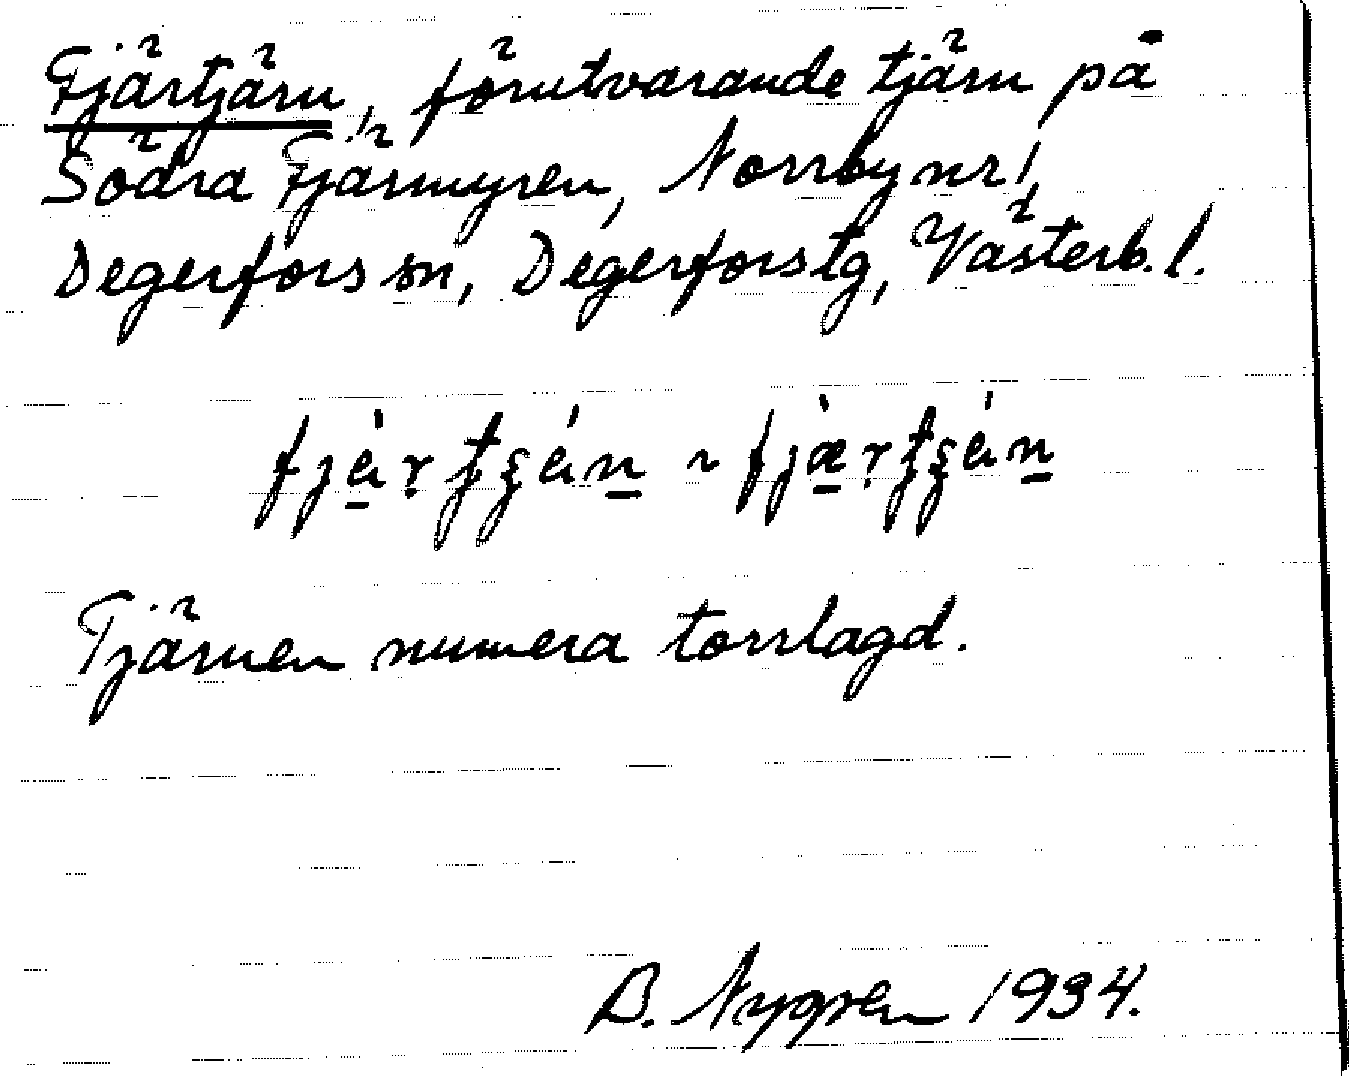 Fjärtjärn, förutvarande tjärn på
Södra Fjärmyren, Norrby nr 1,
Degerfors sn, Degerfors tg, Västerb. l.
Tjärnen numera torrlagd.
B. Nygren 1934.